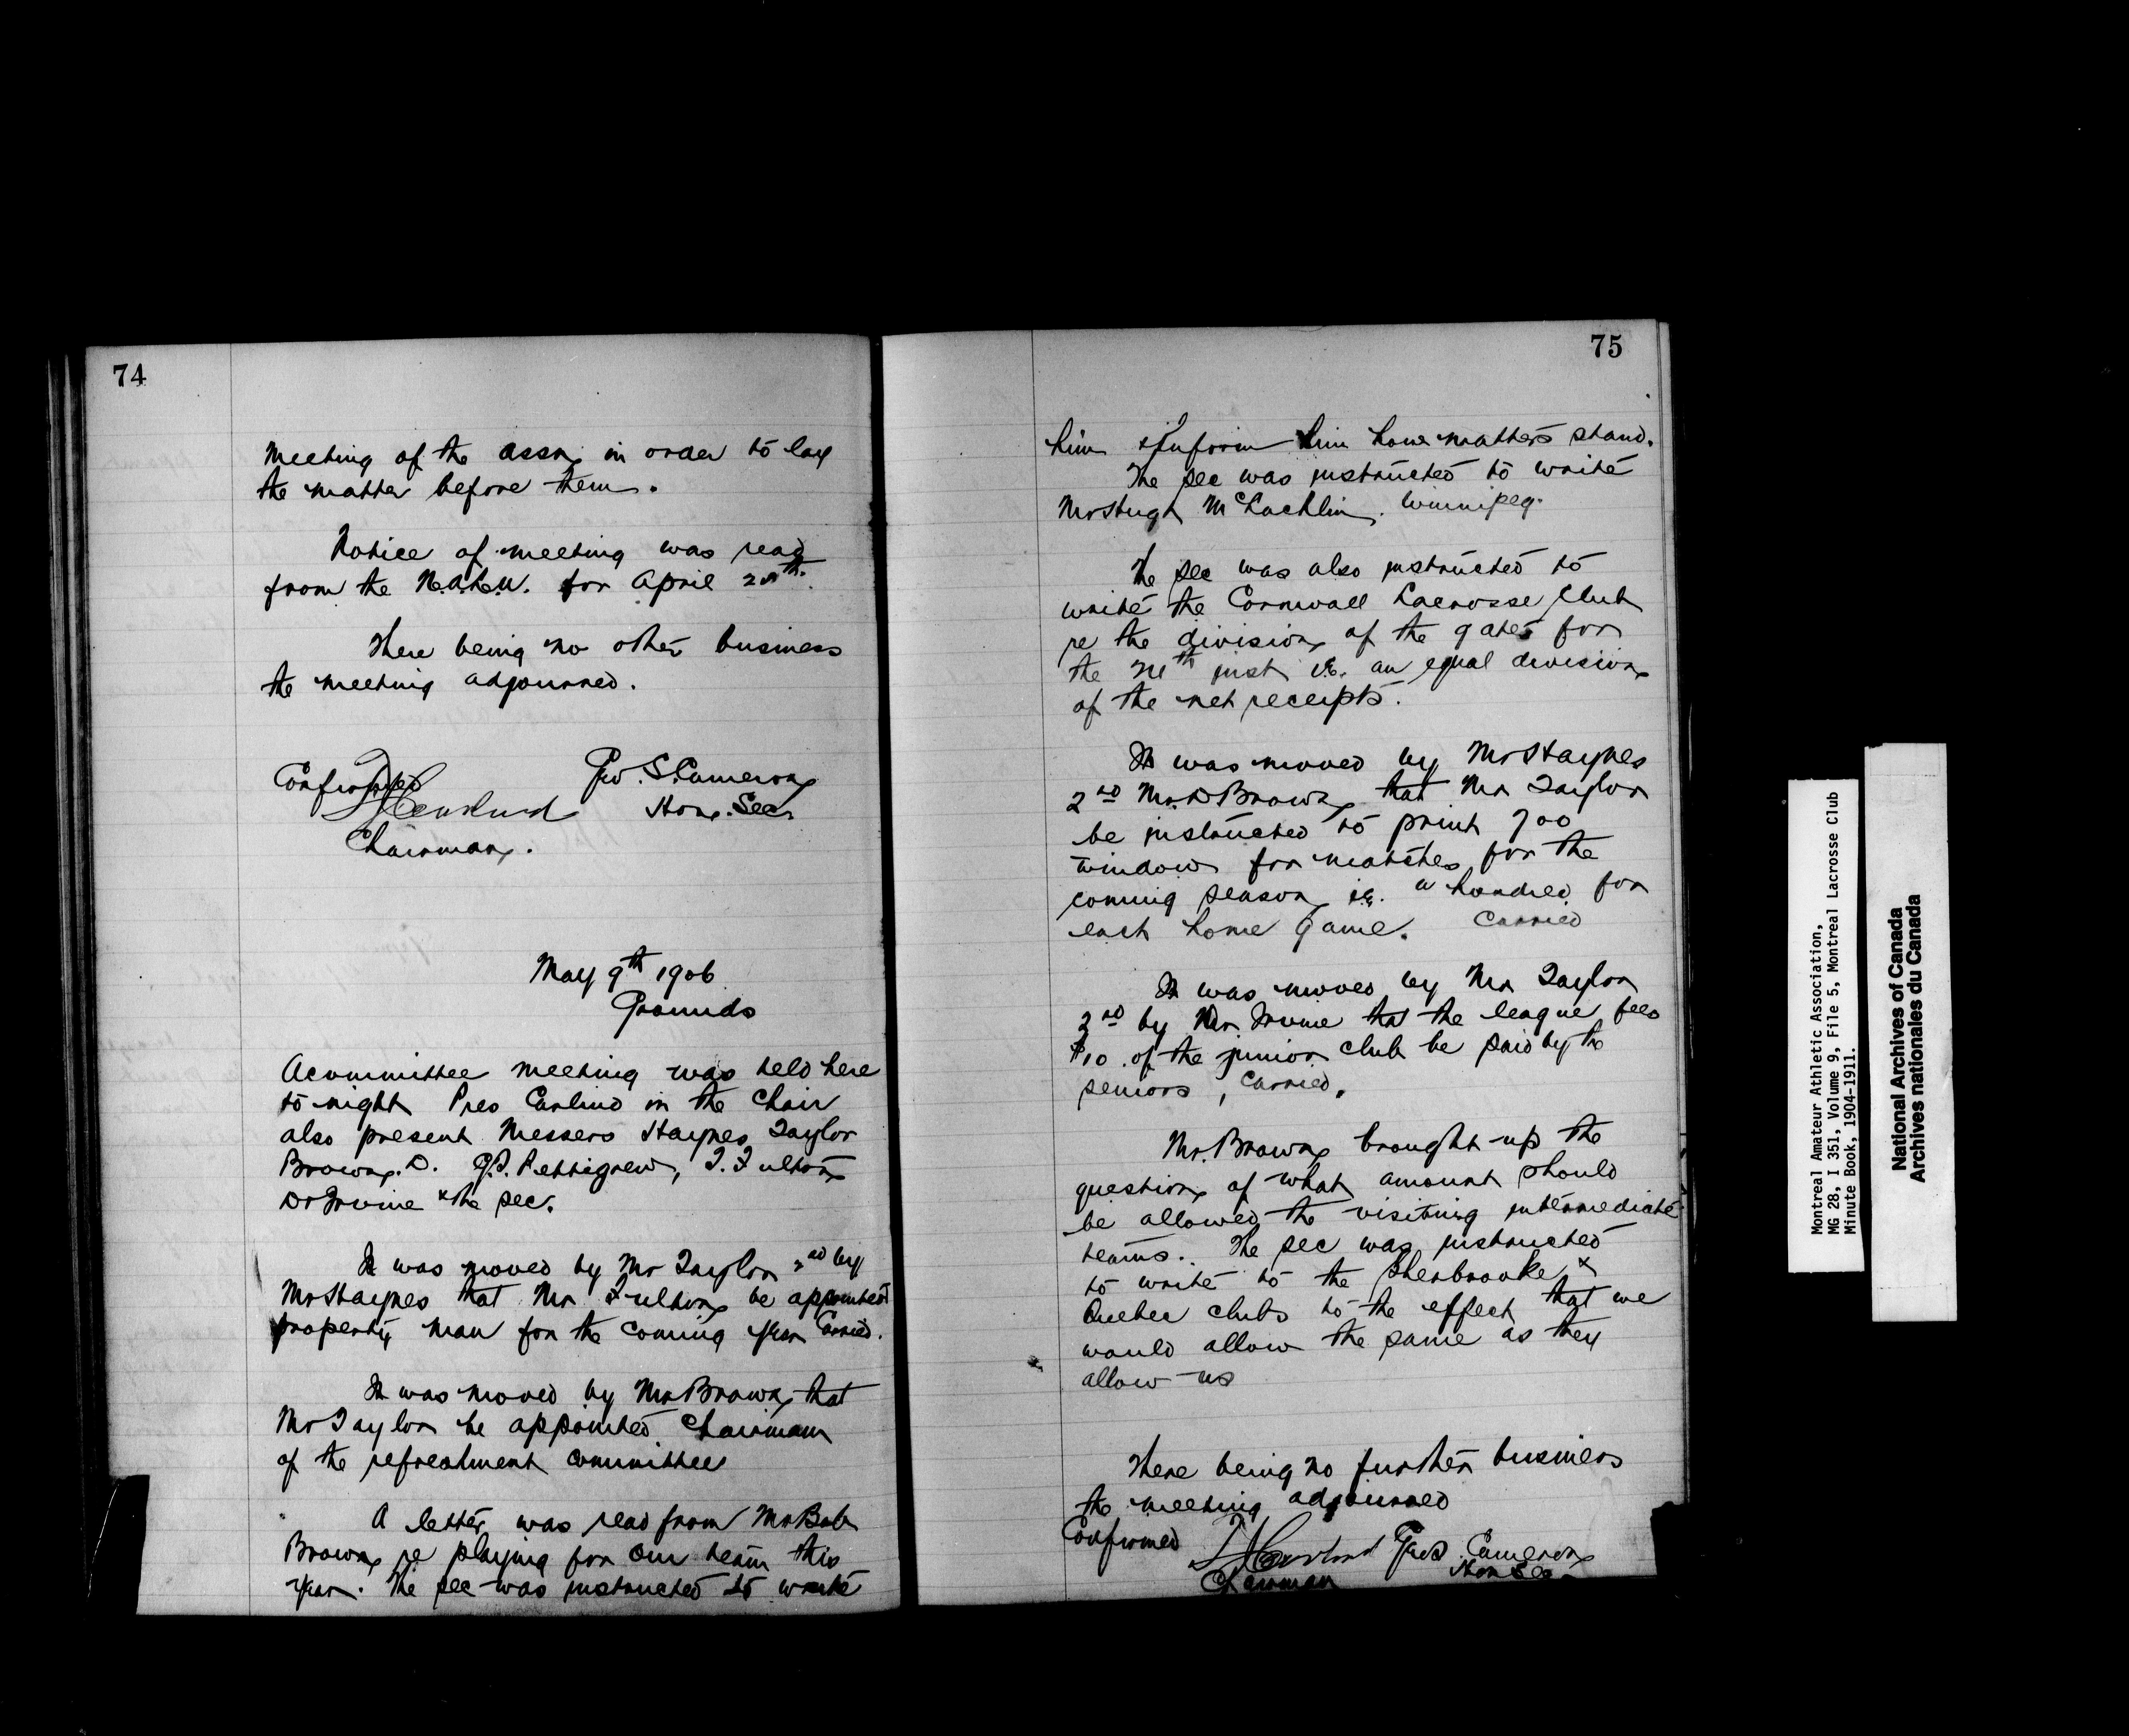 74
Meeting of the assn, in order to lay
the matter before them.
Notice of meeting was read
from the N.A.L.U. for April 28th.
There being no other business
the meeting adjourned.
Confirmed Geo. S. Cameron
Hon. Sec.
Chairman.
May 9th 1906
Grounds
A committee meeting was held here
to-night Pres Carlind in the Chair
also present Messers Haynes, Taylor
Brown. D. G.P. Pettigrew, T. Fulton
Dr Irvine & the sec.
It was moved by Mr Taylor 2nd by
Mr Haynes that Mr Fulton be appointed
property man for the coming year Carried.
It was moved by Mr Brown that
Mr Taylor be appointed Chairman
of the refreshment committee
A letter was read from Mr Bob
Brown re playing for our team this
year. The sec was instructed to write
75
him & inform him how matters stand.
The sec was instructed to write
Mr Hugh McLachlin, Winnipeg.
The sec was also instructed to
write the Cornwall Lacrosse Club
re the division of the gates for
the 24th inst i.e. an equal division
of the net receipts.
It was moved by Mr Haynes
2nd Mr. D Brown that Mr Taylor
be instructed to print 700
window for matches for the
coming season i.e. a hundred for
each home game. Carried
It was moved by Mr Taylor
2nd by Dr. Irvine that the league fees
$10 of the junior club be paid by the
seniors, Carried.
Mr. Brown brought up the
question of what amount should
be allowed the visiting intermediate
teams. The sec was instructed
to write to the Sherbrooke &
Quebec clubs to the effect that we
would allow the same as they
allow us
There being no further business
the meeting adjourned
Confirmed Geo S Cameron
Chairman Hon Sec
Montreal Amateur Athletic Association,
MG 28, I 351, Volume 9, File 5, Montreal Lacrosse Club
Minute Book, 1904-1911.
National Archives of Canada
Archives nationales du Canada